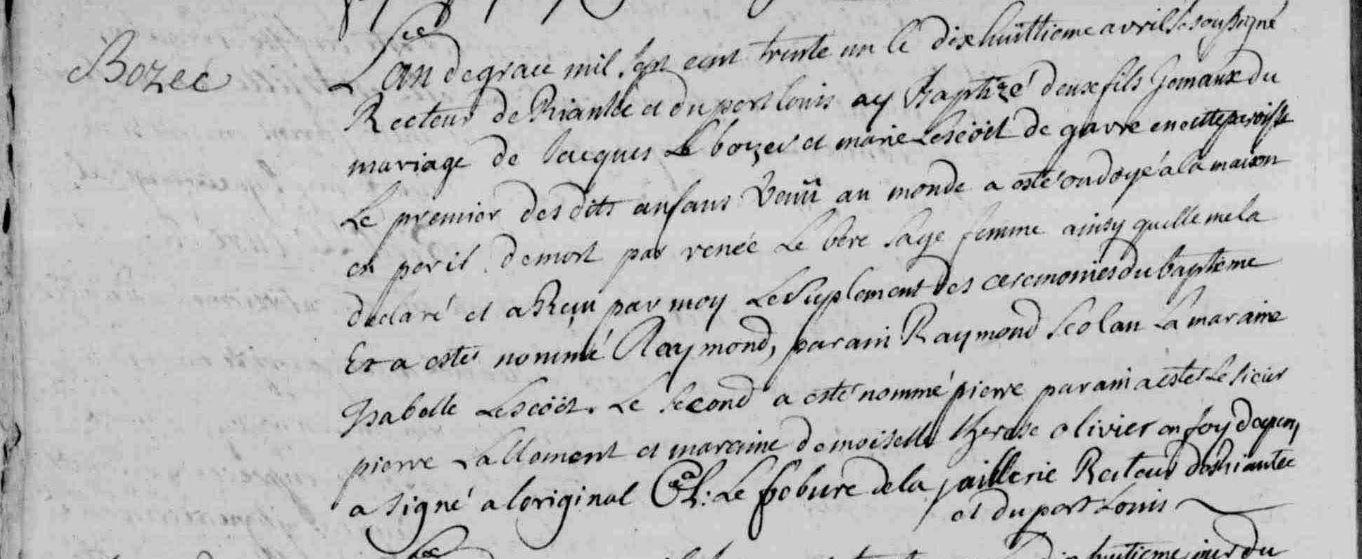 Bozec
L'an de grace mil sept cent trente un le dixhuittieme avril Je soussigné
Recteur de Riantec et du port louis ay Baptizé deux fils Jemaux du
mariage de Jacques Le bozec et marie Lescöët de gavre en cette paroisse
Le premier des dits anfans Venü au monde a esté ondoyé a la maison
en peril de mort par renée Le bere sage femme ainsy quelle me la
declaré et a Reçu par moy Le Suplement des ceremonies du bapteme
Et a esté nommé Raymond, parain Raymond Scolan La maraine
Isabelle Lescöët. Le second a esté nommé pierre parain a esté Le sieur
pierre Lallement et maraine demoiselle therese olivier en foy de quoy
a signé a loriginal Le febure de la jaillerie Recteur de Riantec
et du port Louis